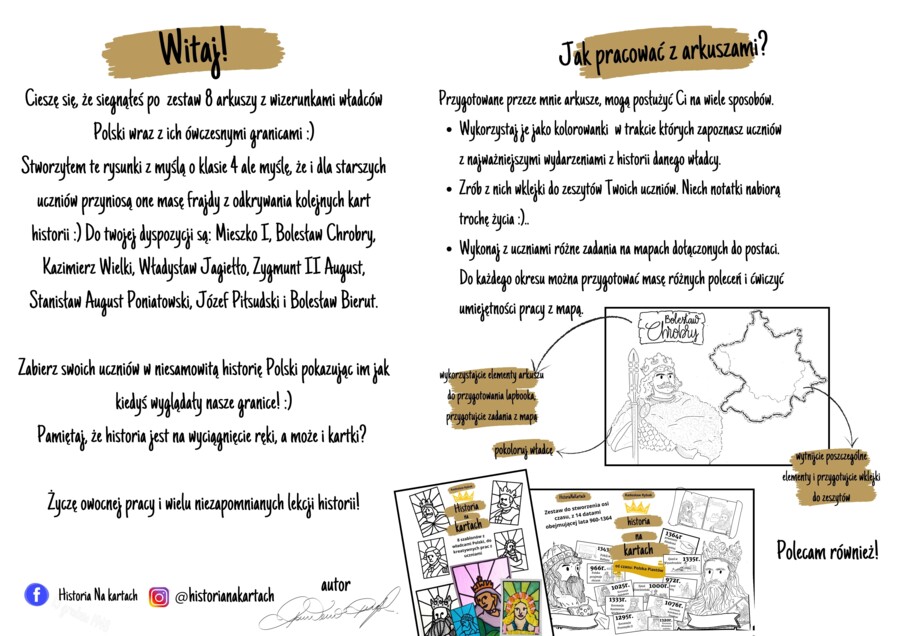 Witaj!
Cieszę się, że sięgnąłeś po zestaw 8 arkuszy z wizerunkami władców
Polski wraz z ich ówczesnymi granicami :)
Stworzyłem te rysunki z myślą o klasie 4 ale myślę, że i dla starszych
uczniów przyniosą one masę frajdy z odkrywania kolejnych kart
historii :) Do twojej dyspozycji są: Mieszko I, Bolesław Chrobry,
Kazimierz Wielki, Władysław Jagiełło, Zygmunt II August,
Stanisław August Poniatowski, Józef Piłsudski i Bolesław Bierut.
Zabierz swoich uczniów w niesamowitą historię Polski pokazując im jak
kiedyś wyglądały nasze granice! :)
Pamiętaj, że historia jest na wyciągnięcie ręki, a może i kartki?
Życzę owocnej pracy i wielu niezapomnianych lekcji historii!
Historia Na kartach
@historianakartach
autor
Jak pracować z arkuszami?
Przygotowane przeze mnie arkusze, mogą posłużyć Ci na wiele sposobów.
• Wykorzystaj je jako kolorowanki w trakcie których zapoznasz uczniów
z najważniejszymi wydarzeniami z historii danego władcy.
• Zrób z nich wklejki do zeszytów Twoich uczniów. Niech notatki nabiorą
trochę życia :)..
• Wykonaj z uczniami różne zadania na mapach dołączonych do postaci.
Do każdego okresu można przygotować masę różnych poleceń i ćwiczyć
umiejętności pracy z mapą.
Bolesław
Chrobry
wykorzystajcie elementy arkuszu
do przygotowania lapbooka,
przygotujcie zadania z mapą
pokoloruj władcę
wytnijcie poszczególne
elementy i przygotujcie wklejki
do zeszytów
Polecam również!
Historia
na
kartach
8 szablonów z
władcami Polski, do
kreatywnych prac z
uczniami
HistoriaNaKartach
Zestaw do stworzenia osi
czasu, z 14 datami
obejmującej lata 960-1364
historia
na
kartach
oś czasu: Polska Piastów
1364r.
966r.
972r.
1025r.
1000r.
1333r.
1076r.
1295r.